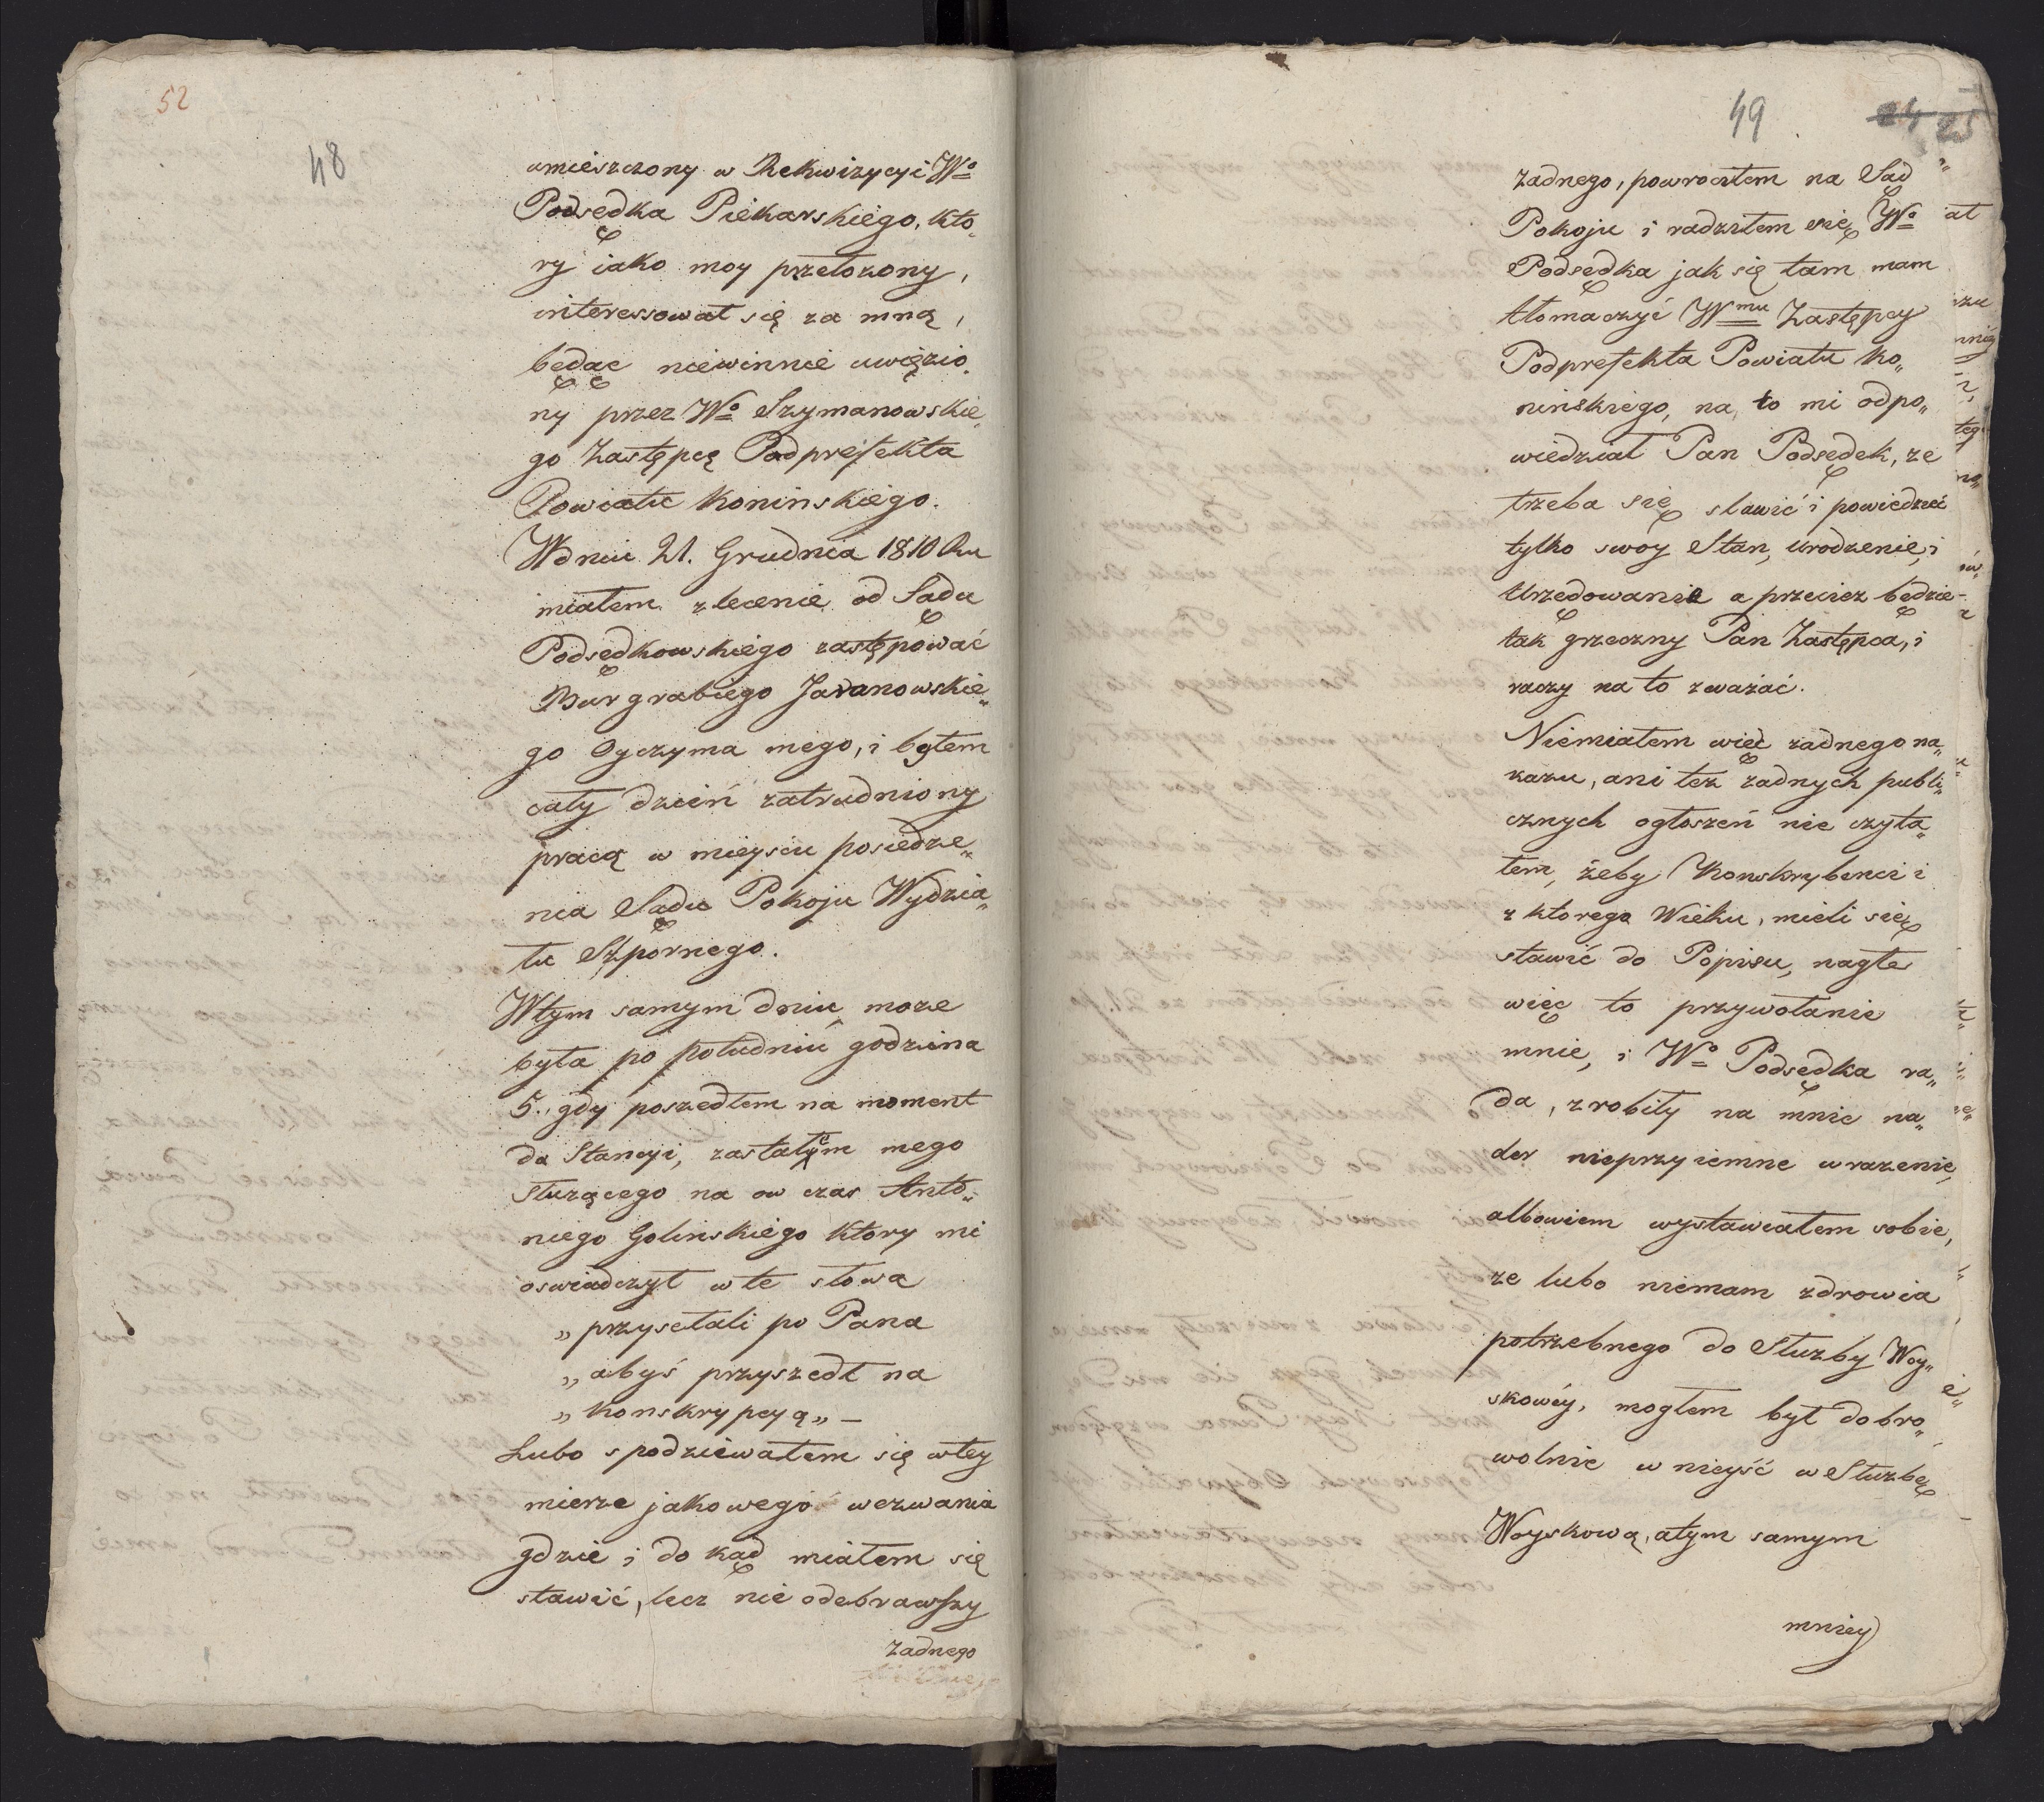 52
48
umieszczony w Rekwizycyi Wo
Podsędka Piekarskiego, kto„
ry iako moy przełozony,
interessował się za mną,
będąc niewinnie uwięzio„
ny przez Wo Szymanowskie„
go Zastępcę Podprefekta
Powiatu Konińskiego.
W dniu 21. Grudnia 1810 Ru
miałem zlecenie od Sądu
Podsędkowskiego zastępować
Burgrabiego Jaranowskie„
go Oyczyma mego, i byłem
cały dzień zatrudniony
pracą w mieyscu posiedze„
nia Sądu Pokoju Wydzia„
łu Spornego.
W tym samym dniu może
była po południu godzina
5. gdy poszedłem na moment
do Stancyi, zastałem mego
służącego na ow czas Anto„
niego Golinskiego ktory mi
oswiadczył w te słowa
„przysełali po Pana
„abyś przyszedł na
„Konskrypcyą„ —
Lubo spodziewałem się w tey
mierze jakowego wezwania
gdzie i do kąd miałem się
stawić, lecz nie odebrawszy
żadnego
49
24 25
żadnego, powrociłem na Sąd
Pokoju i radziłem się Wo
Podsędka jak się tam mam
tłomaczyć Wmu Zastępcy
Podprefekta Powiatu Ko„
ninskiego, na to mi odpo„
wiedział Pan Podsędek, ze
trzeba się stawić i powiedzieć
tylko swoy Stan, urodzenie, i
Urzędowanie a przeciez będzie
tak grzeczny Pan Zastępca, i
raczy na to zważać.
Niemiałem więc zadnego na„
kazu, ani tez żadnych publi„
cznych ogłoszeń nie czyta„
łem, żeby Konskrybenci i
z ktorego Wieku, mieli się
stawić do Popisu, nagłe
więc to przywołanie
mnie, i Wo Podsędka ra„
da, zrobiły na mnie na„
der nieprzyiemne wrazenie,
albowiem wystawiałem sobie,
ze lubo niemam zdrowia
potrzebnego do Służby Woy„
skowéy, mogłem był dobro„
wolnie wnieyść w Służbę
Woyskową, a tym samym
mniey